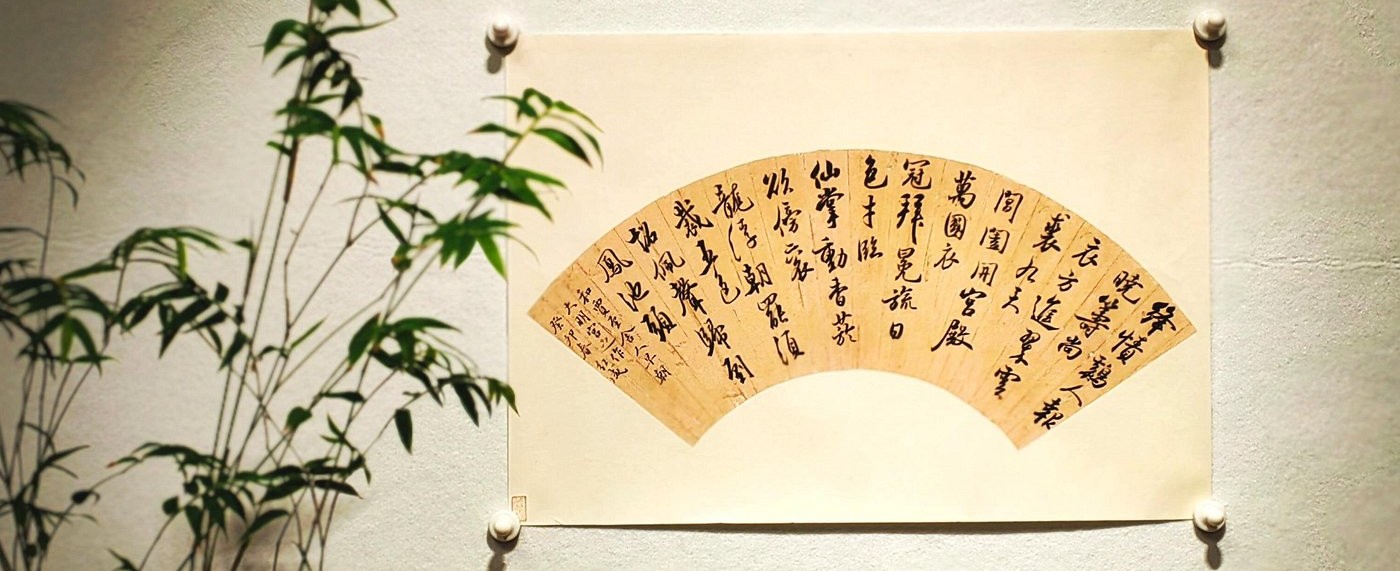 絳幘鷄人報
曉籌尚
衣方進翠雲
裘九天
閶闔開宮殿
萬國衣
冠拜冕旒日
色才臨
仙掌動香菸
欲傍袞
龍浮朝罷須
裁五色
詔佩聲歸到
鳳池頭
和賈至舍人早朝
大明宮之作
癸卯春